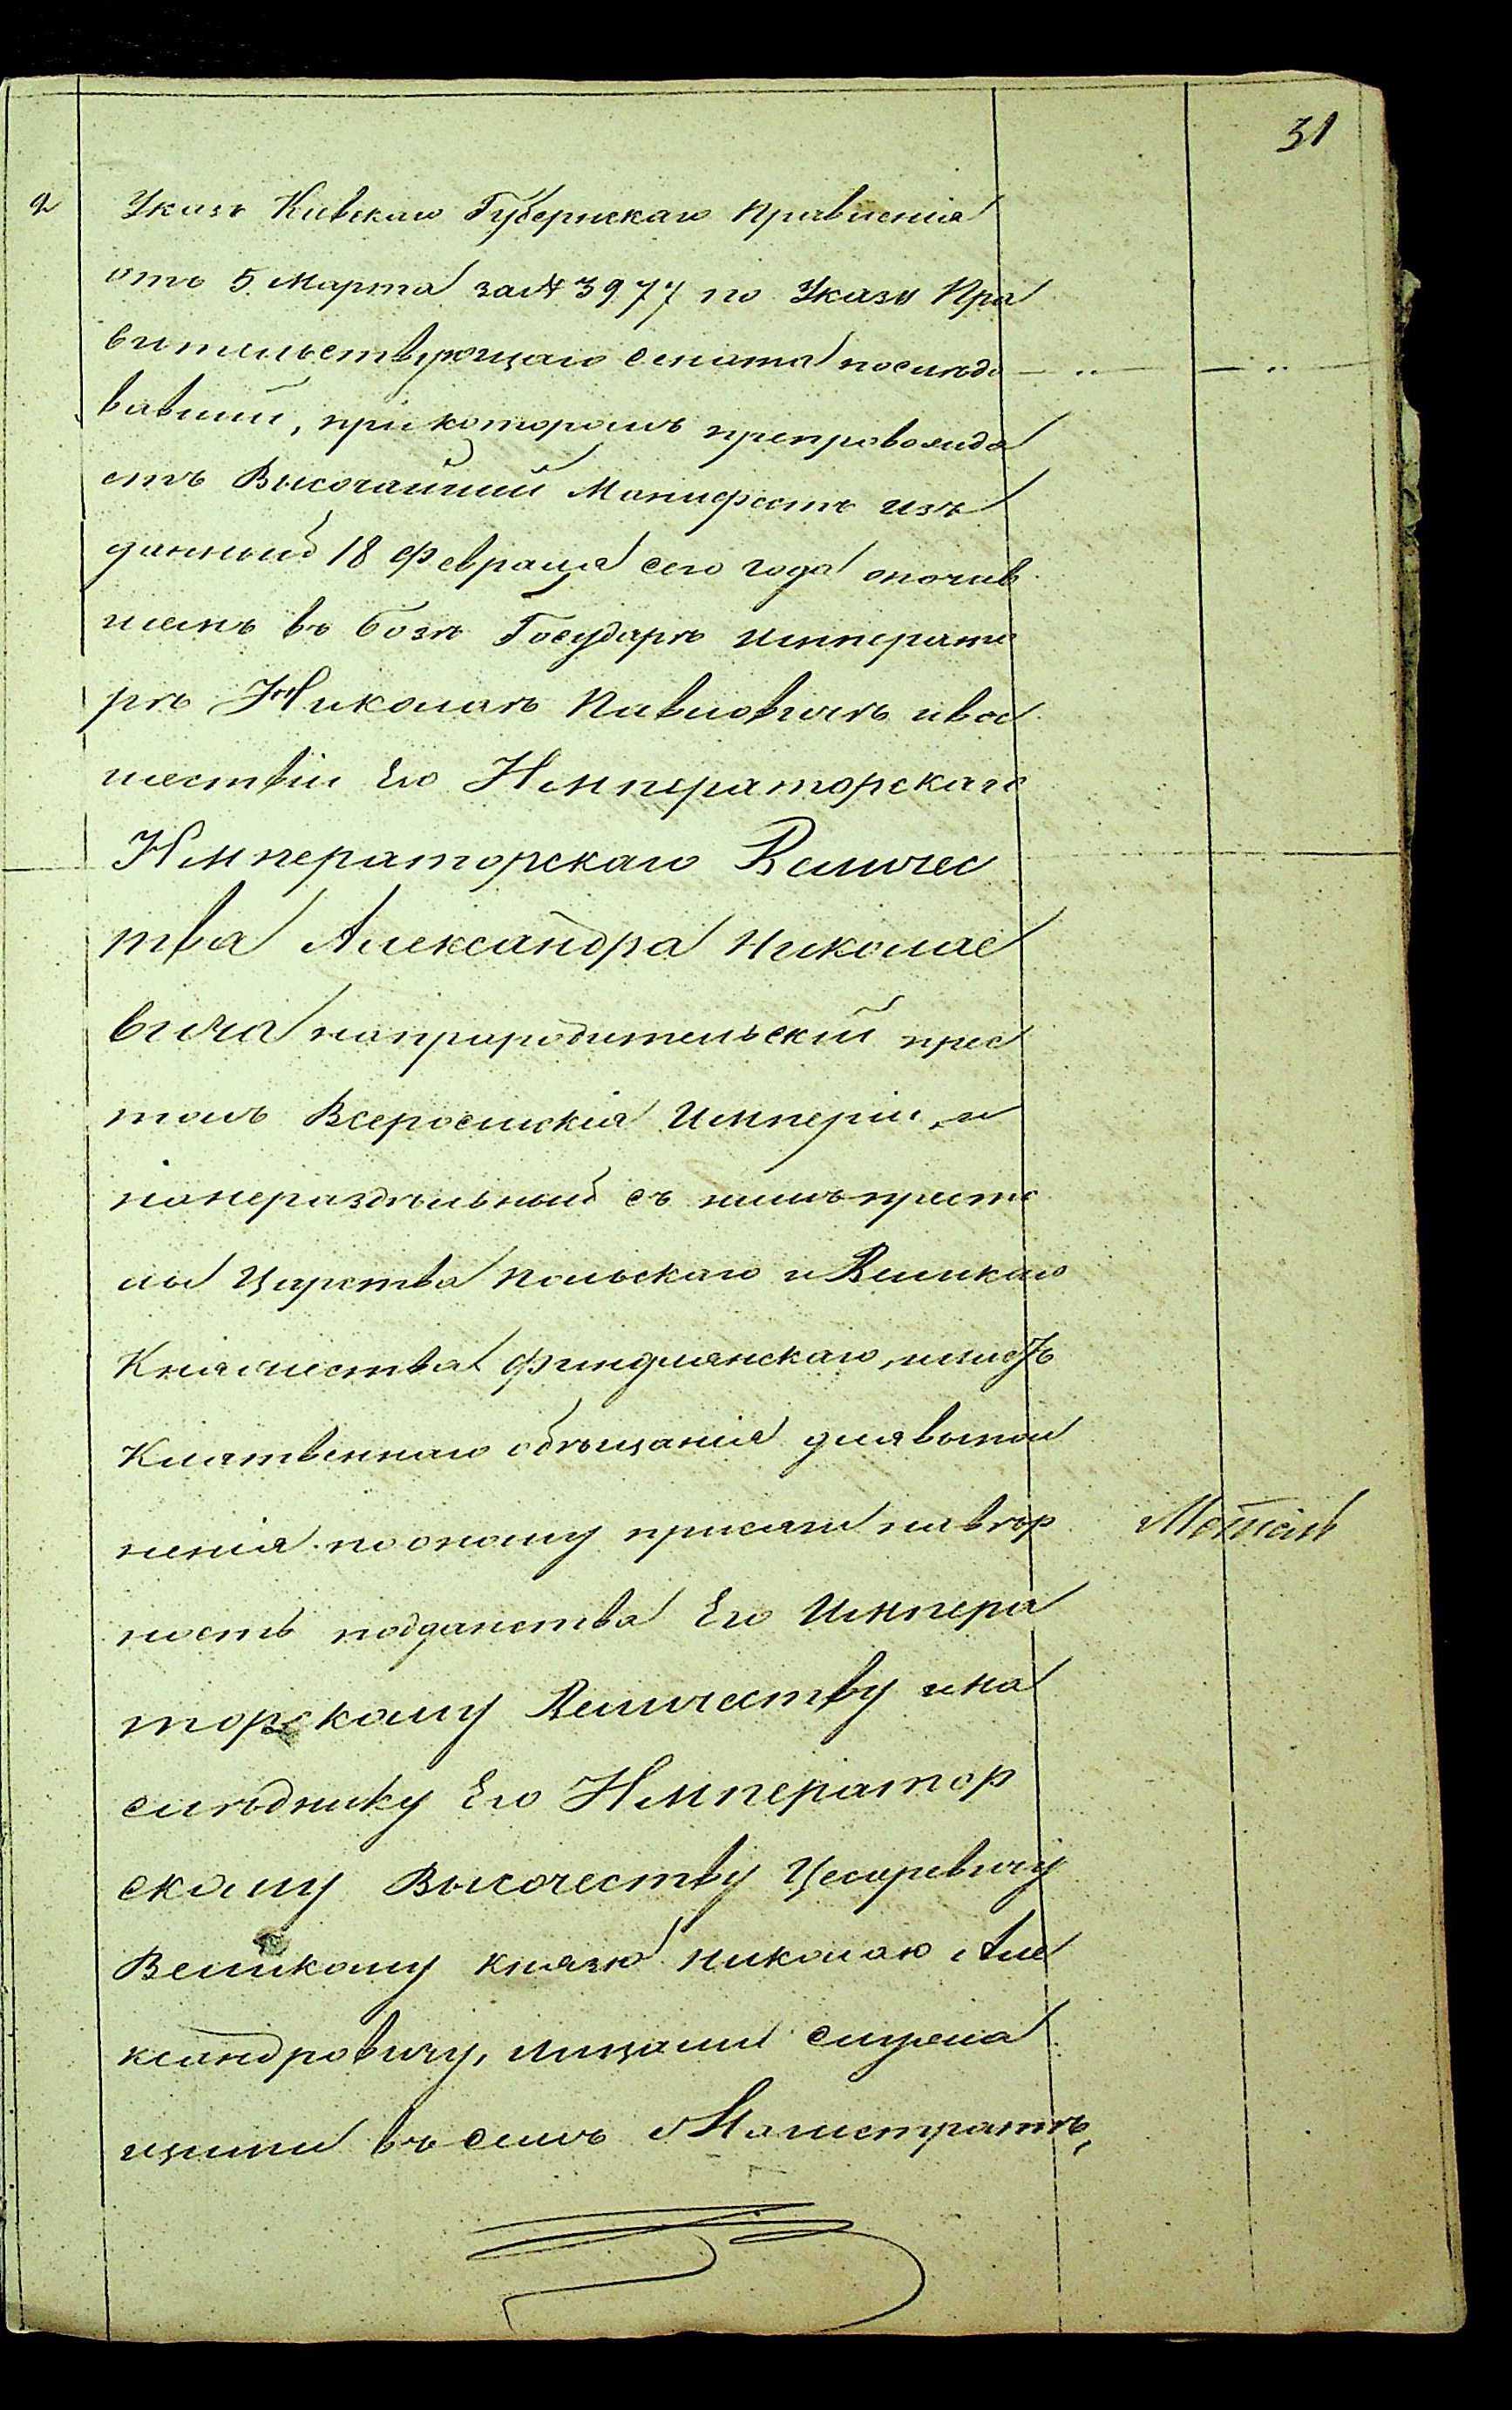 31
2
Указъ Кіевскаго Губернскаго Правленія
отъ 5 Марта за № 3977 по Указу Пра
вительствующаго сената последо
вавшій, при которомъ препровожда
етъ Высочайшій Манифестъ изъ
данный 18 Февраля сего года опочив
шемъ въ бозѣ Государѣ императо
рѣ Николаѣ Павловичѣ и вос
шествіи Его Императорскаго
Императорскаго Величес
тва Александра Николае
вича на прародительскій прес
толъ Всеросійскія Имперіи, и
на нераздѣльный съ нимъ престо
лы Царства Польскаго и Великаго
Княжества Финдлянскаго, и
Клятвеннаго обѣщанія для выпол
ненія по оному присяги на вѣр
ность подданства Его Импера
торскому Величеству и На
слѣднику Его Император
скому Высочеству Цесаревичу
Великому князю Николаю Але
ксандровичу, лицами служа
щими въ семъ Магистратѣ,